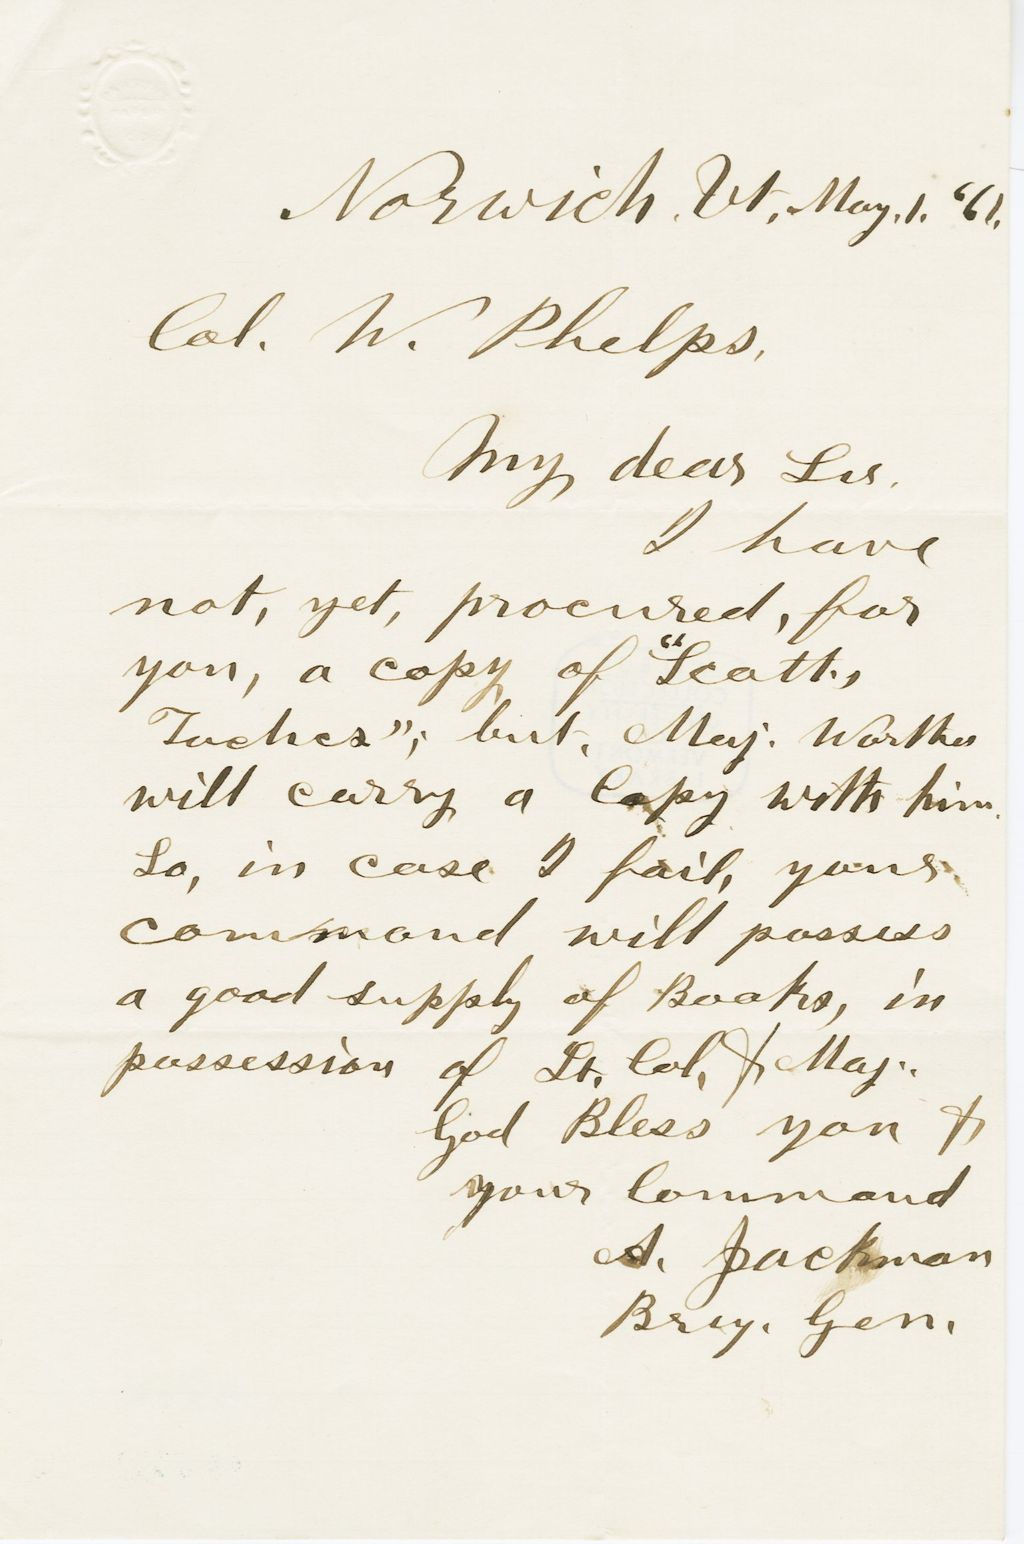 Norwich. Vt, May. 1. "61.
Col. W. Phelps,
My dear Sir.
I have
not, yet, procured, for
you, a copy of "Scotts,
Tactics"; but, Maj. Worthen
will carry a Copy with him.
So, in case I fail, your
command will possess
a good supply of Books, in
possession of Lt. Col, & Maj.
God Bless you &
your Command
A. Jackman
Brig. Gen.